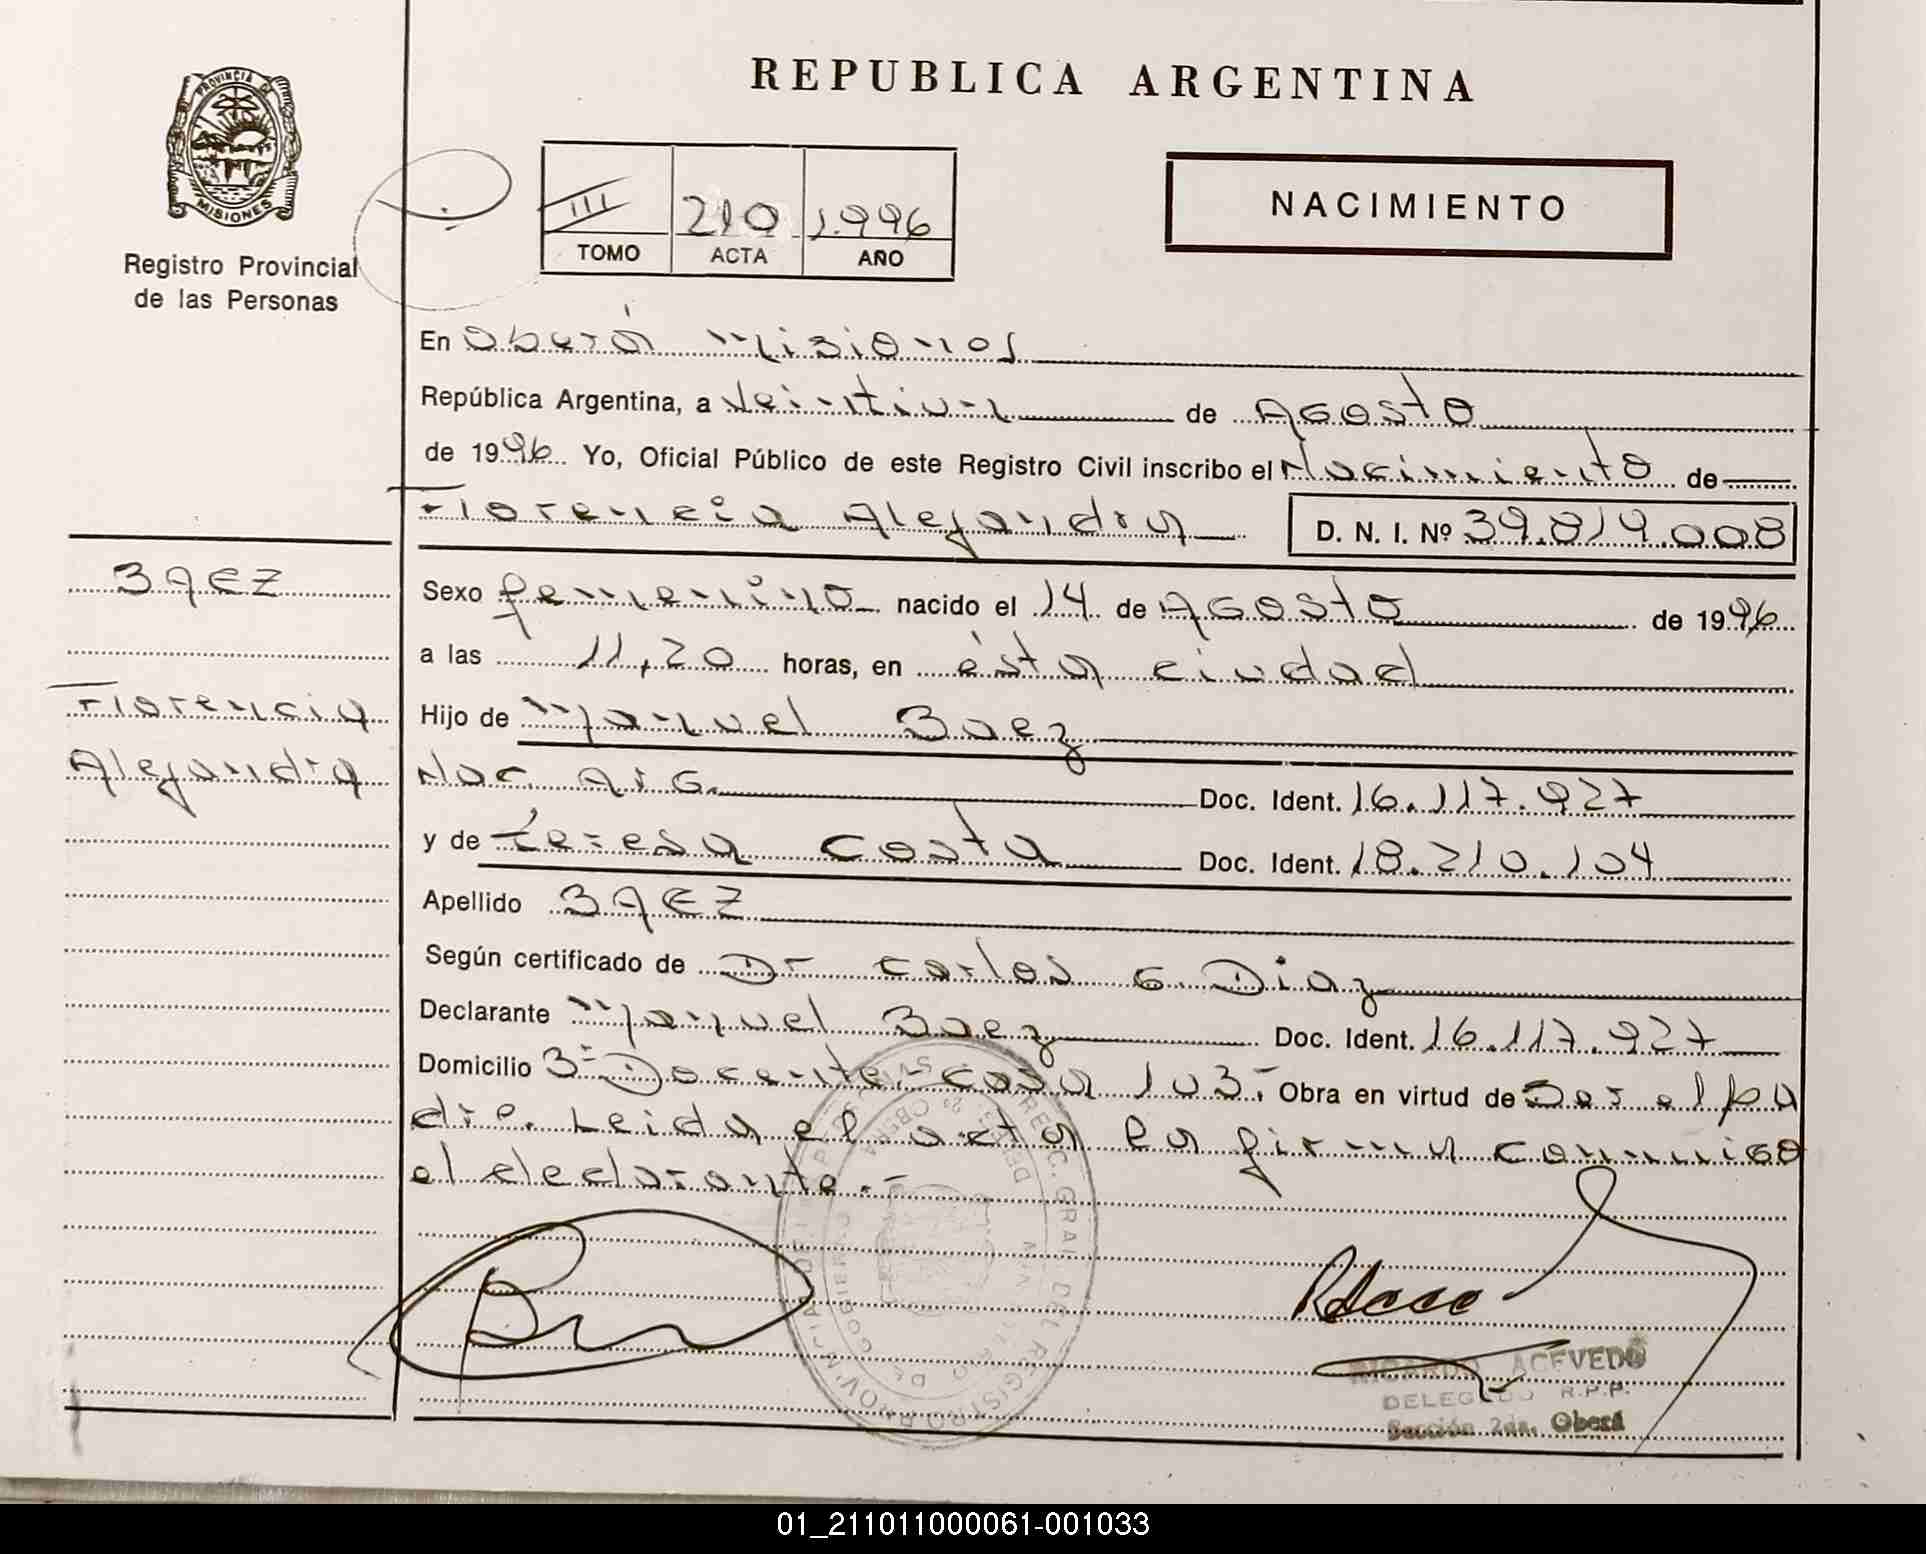 REPUBLICA ARGENTINA
PROVINCIA DE
MISIONES
Registro Provincial
de las Personas
III 210 1.996
TOMO ACTA AÑO
NACIMIENTO
En Oberá Misiones
República Argentina, a Veintiun de Agosto
de 1996 Yo, Oficial Público de este Registro Civil inscribo el Nacimiento de
Florencia Alejandra D. N. I. Nº 39.819.008
BAEZ
Florencia
Alejandra
Sexo femenino nacido el 14 de Agosto de 1996
a las 11,20 horas, en ésta ciudad
Hijo de Manuel Baez
Nac. Arg. Doc. Ident. 16.117.927
y de teresa Costa Doc. Ident. 18.210.104
Apellido BAEZ
Según certificado de Dr Carlos G. Diaz
Declarante Manuel Baez Doc. Ident. 16.117.927
Domicilio Bº Docente-casa 103- Obra en virtud de Ser el pa
dre. Leida el acta la firma conmigo
el declarante.-
RICARDO ACEVEDO
DELEGADO R.P.P.
Sección 2da. Oberá
01_211011000061-001033